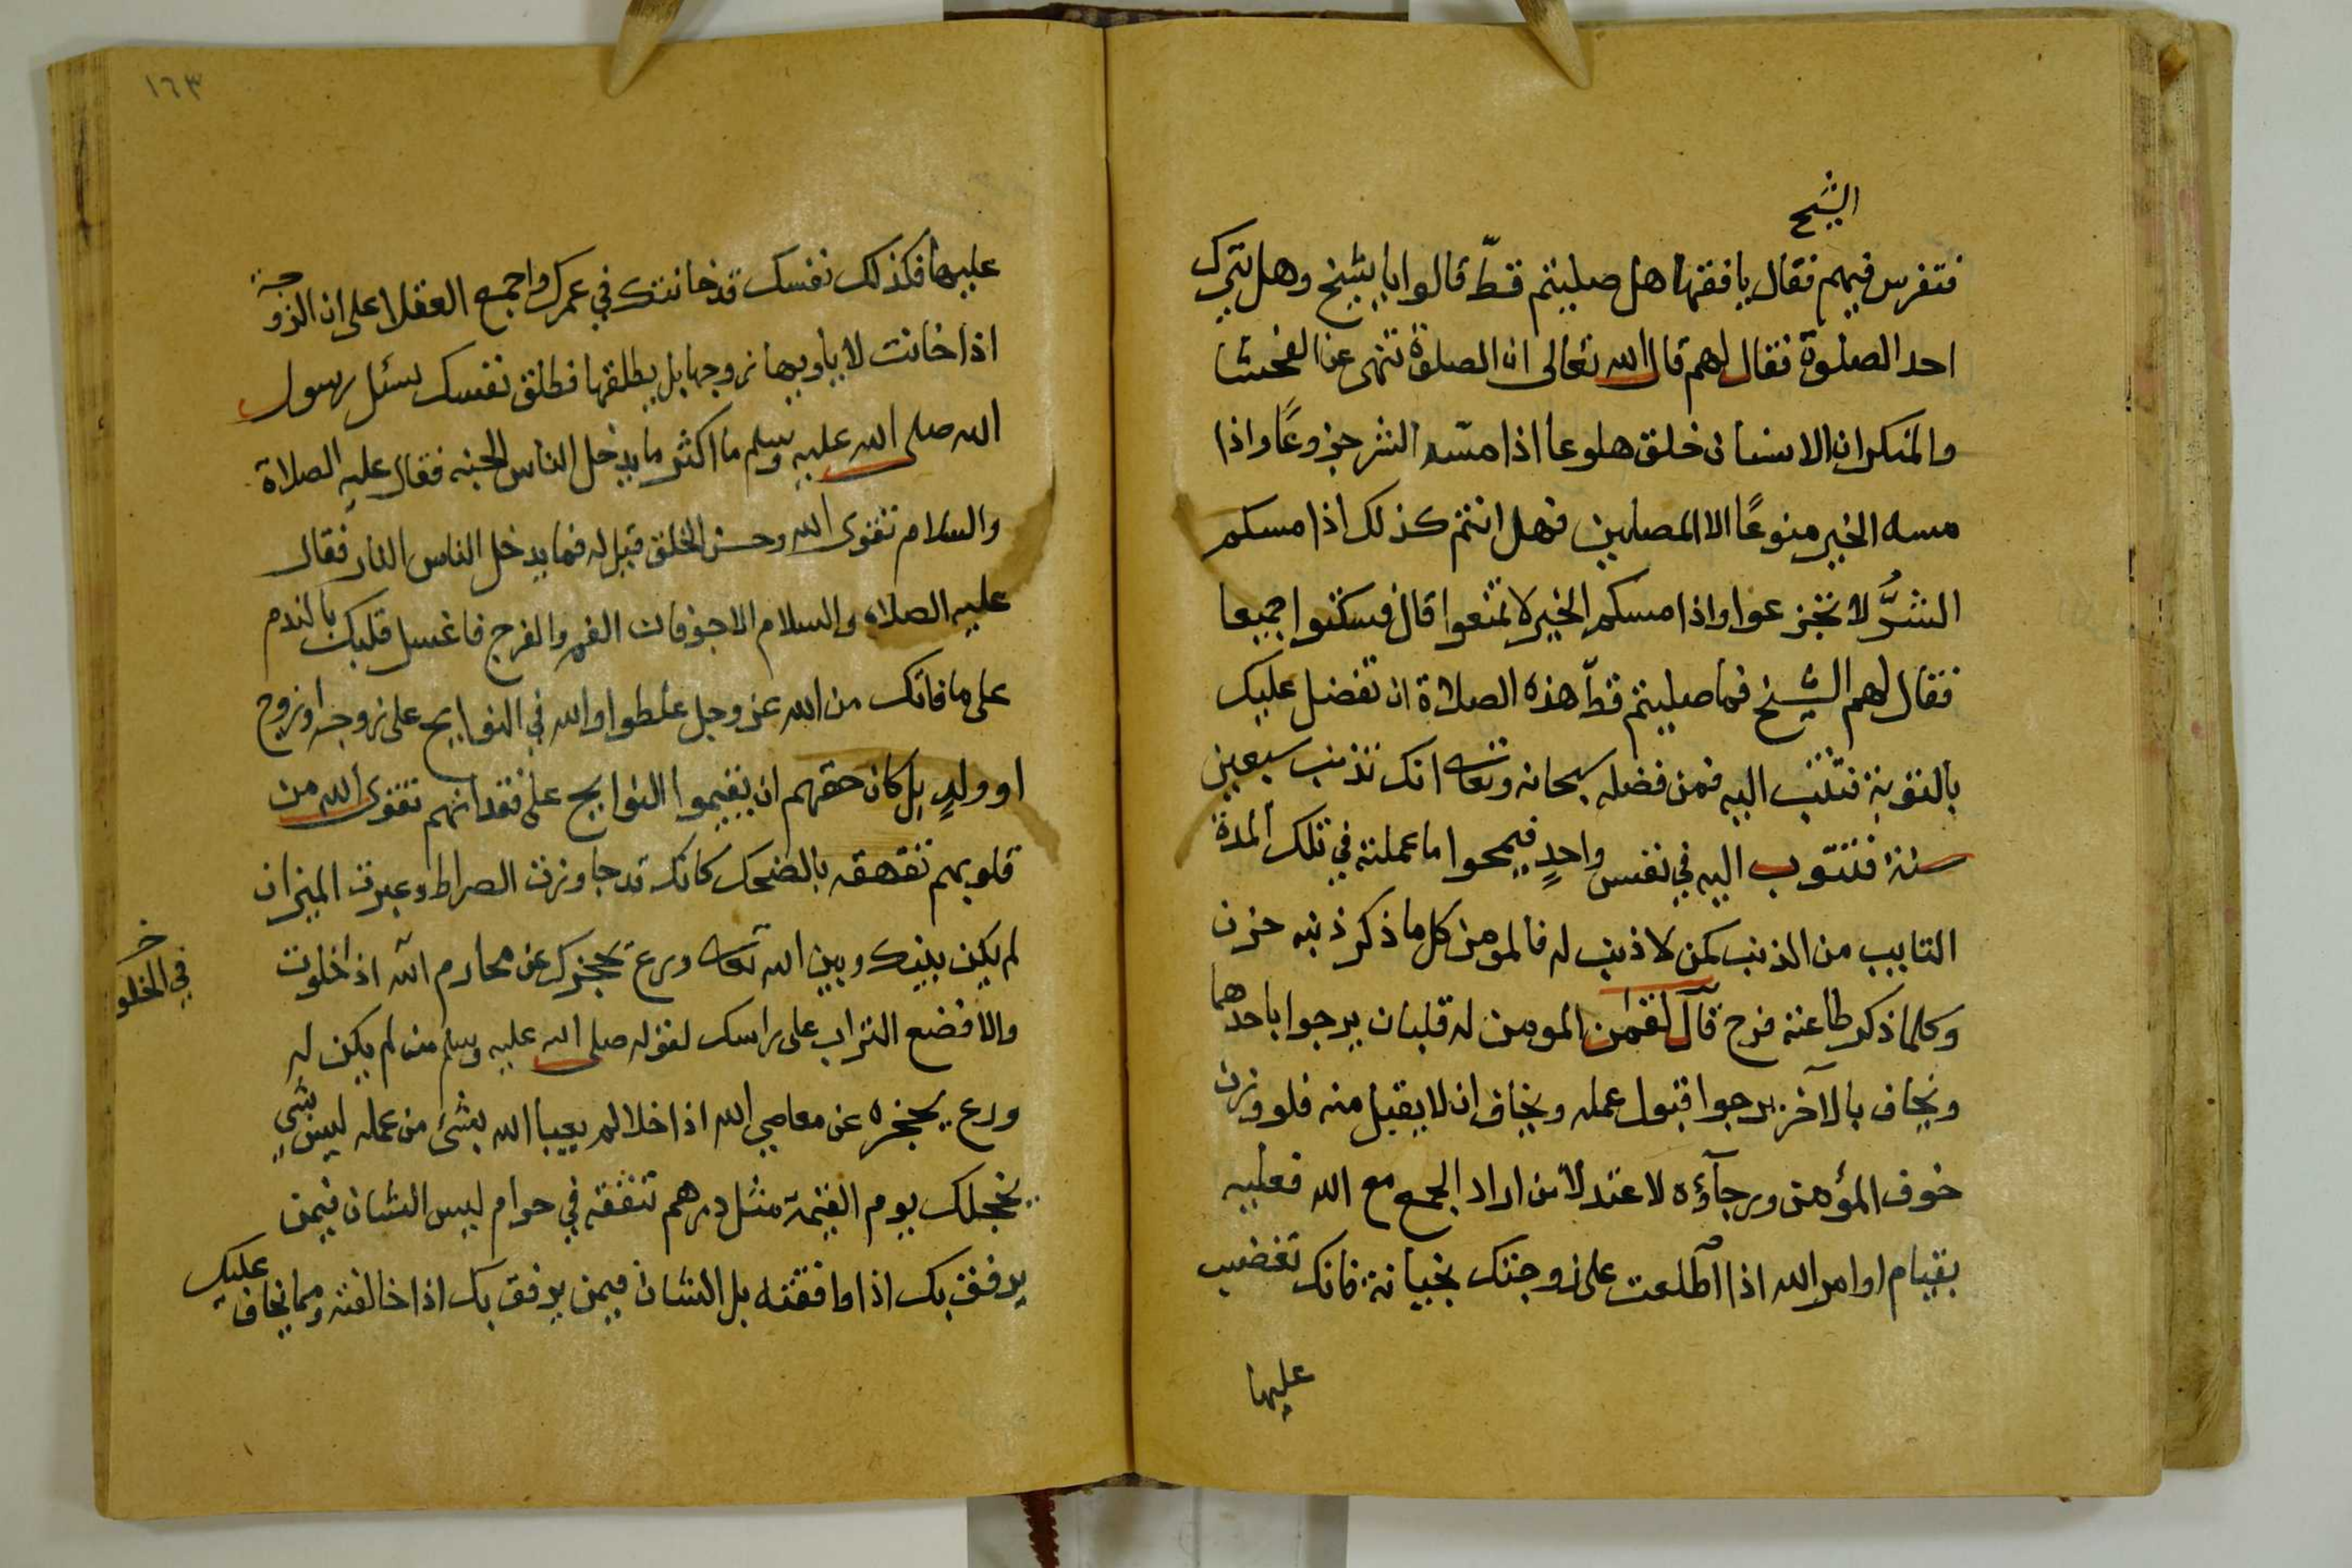 الشيخ
فتفرس فيهم فقال يا فقها هل صليتم قطّ قالوا يا شيخ وهل يترك
احد الصلوة فقال لهم قال الله تعالى ان الصلوة تنهى عن الفحشا
والمنكر ان الانسان خلق هلوعا اذا مسّه الشر جزوعًا واذا
مسه الخير منوعًا الا المصلين فهل انتم كذلك اذا مسكم
الشرُّ لا تجزعوا واذا مسكم الخير لا تمنعوا قال فسكتوا جميعا
فقال لهم الشيخ فما صليتم قطّ هذه الصلاة ان تفضل عليك
بالتوبة فتتب اليه فمن فضله سبحانه وتعالى انك تذنب سبعين
سنة فتتوب اليه في نفس واحدٍ فيمحوا ما عملته في تلك المدة
التايب من الذنب كمن لا ذنب له فالمومن كل ما ذكر ذنبه حزن
وكلما ذكر طاعته فرح قال لقمن المومن له قلبان يرجوا باحدهما
ويخاف بالآخر يرجوا قبول عمله ويخاف ان لا يقبل منه فلو وزن
خوف المؤمن ورجآؤه لاعتدلا من اراد الجمع مع الله فعليه
بقيام اوامر الله اذا اطلعت على زوجتك بخيانة فانك تغضب
عليها
١٦٣
عليها فكذلك نفسك قد خانتك في عمرك واجمع العقلا على ان الزوجة
اذا خانت لا ياويها زوجها بل يطلقها فطلق نفسك سئل رسول
الله صلى الله عليه وسلم ما اكثر ما يدخل الناس الجنه فقال عليه الصلاة
والسلام تقوى الله وحسن الخلق قيل له فما يدخل الناس النار فقال
عليه الصلاه والسلام الاجوفان الفم والفرج فاغسل قلبك بالندم
على ما فاتك من الله عز وجل غلطوا والله في النوايح على زوجه او زوج
او ولدٍ بل كان حقهم ان يقيموا النوايح على فقدانهم تقوى الله من
قلوبهم تقهقه بالضحك كانك قد جاوزت الصراط وعبرت الميزان
لم يكن بينك وبين الله تعالى ورع يحجزك عن محارم الله اذا خلوت
في الخلو
والا فضع التراب على راسك لقوله صلى الله عليه وسلم من لم يكن له
ورع يحجزه عن معاصي الله اذا خلا لم يعبا الله بشئ من عمله ليس شي
يخجلك يوم القيمة مثل درهم تنفقه في حرام ليس الشان فيمن
يرفق بك اذا وافقته بل الشان فيمن يرفق بك اذا خالفته ومما يخاف عليك